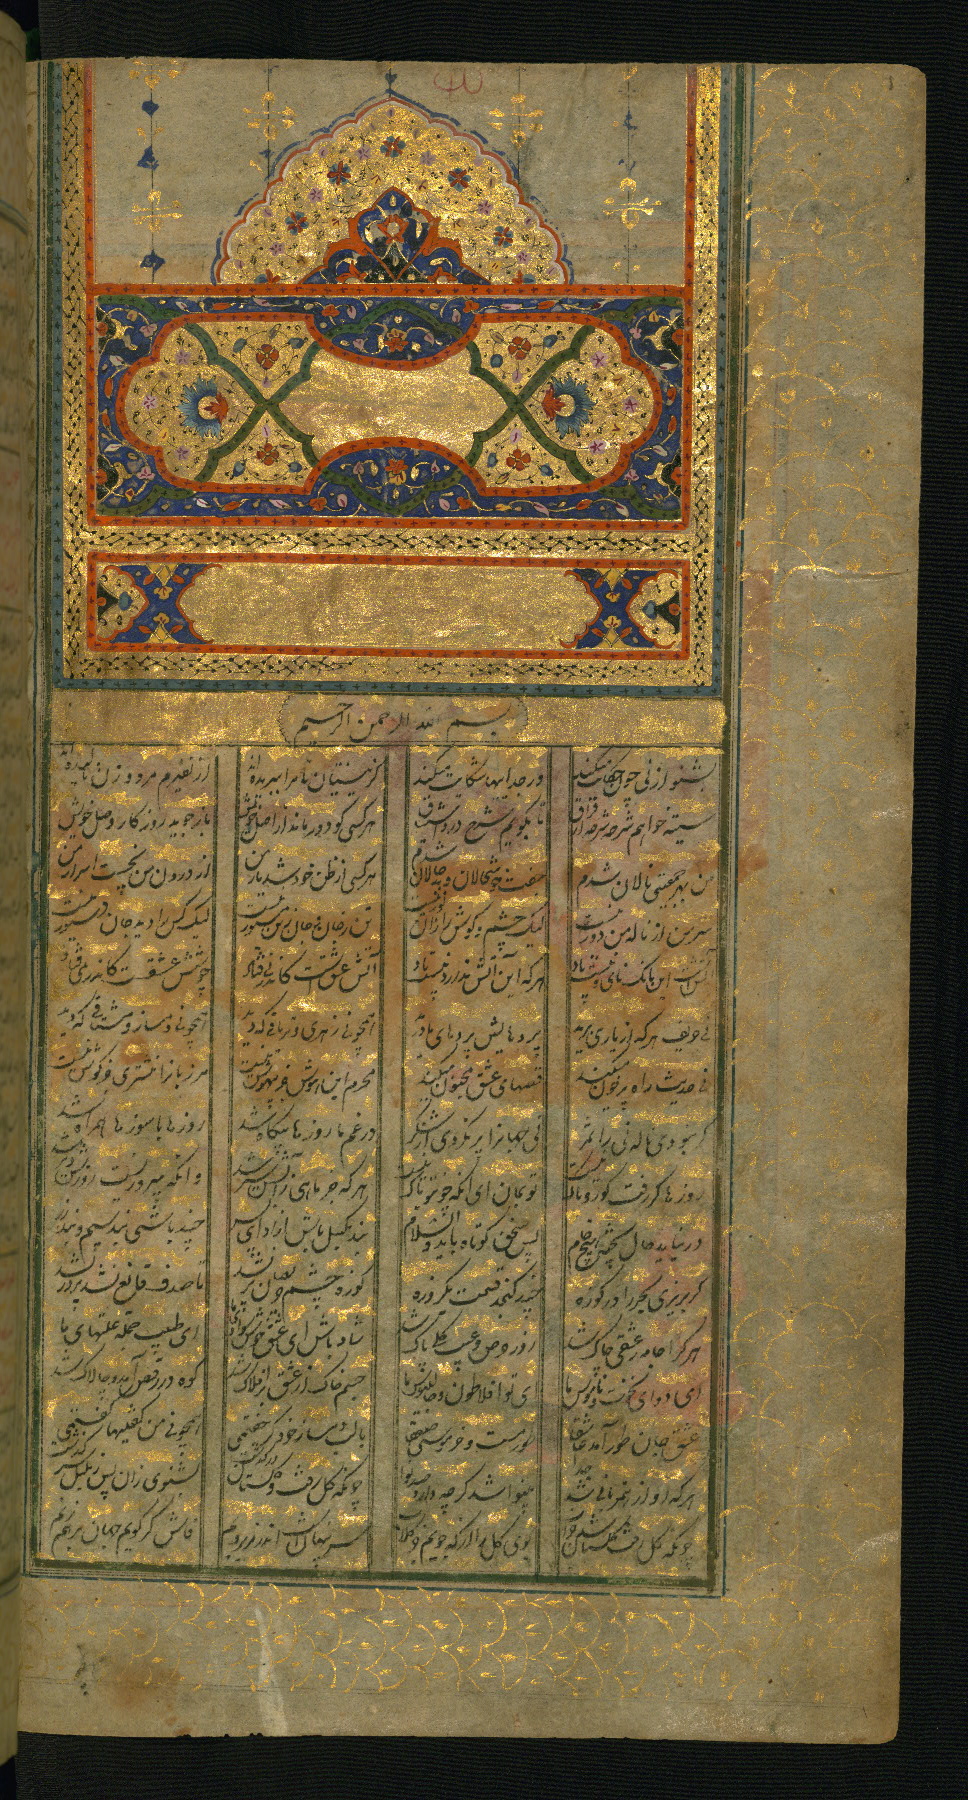 بسم الله الرحمن الرحیم
بشنو از نی چون حکایت میکند ور جداییها شکایت میکند کز نیستان تا مرا ببریده اند از نفیرم مرد و زن نالیده اند
سینه خواهم شرحه شرحه از فراق تا بگویم شرح درد اشتیاق هر کسی کو دور ماند از اصل خویش باز جوید روزگار وصل خویش
من بهر جمعیتی نالان شدم جفت خوشحالان و بدحالان شدم هر کسی از ظن خود شد یار من از درون من نجست اسرار من
سر من از ناله من دور نیست لیک چشم و گوش را آن نور نیست تن ز جان و جان ز تن مستور نیست لیک کس را دید جان دستور نیست
آتش است این بانک نای و نیست باد هر که این آتش ندارد نیست باد آتش عشق است کاندر نی فتاد جوشش عشقست کاندر می فتاد
نی حریف هر که از یاری برید پردهایش پردهای ما درید همچو نی زهری و تریاقی که دید همچو نی دمساز و مشتاقی که دید
نی حدیث راه پر خون میکند قصهای عشق مجنون میکند محرم این هوش جز بیهوش نیست مر زبانرا مشتری جز گوش نیست
گر نبودی ناله نی را ثمر نی جهانرا پر نکردی از شکر در غم ما روزها بیگاه شد روزها با سوزها همراه شد
روزها گر رفت گو رو باک نیست تو بمان ای آنکه چون تو پاک نیست هر که جز ماهی ز آبش سیر شد وانکه بی روزیست روزش دیر شد
درنیابد حال پخته هیچ خام پس سخن کوتاه باید والسلام بند بگسل باش آزاد ای پسر چند باشی بند سیم و بند زر
گر بریزی بحر را در کوزه چند گنجد قسمت یکروزه کوزه چشم حریصان پر نشد تا صدف قانع نشد پر در نشد
هر کرا جامه ز عشقی چاک شد او ز حرص و عیب کلی پاک شد شاد باش ای عشق خوش سودای ما ای طبیب جمله علتهای ما
ای دوای نخوت و ناموس ما ای تو افلاطون و جالینوس ما جسم خاک از عشق بر افلاک شد کوه در رقص آمد و چالاک شد
عشق جان طور آمد عاشقا طور مست و خر موسی صعقا با لب دمساز خود گر جفتمی همچو نی من گفتنیها گفتمی
هر که او از همزبانی شد جدا بینوا شد گرچه دارد صد نوا چونکه گل رفت و گلستان درگذشت نشنوی زان پس ز بلبل سرگذشت
چونکه گل رفت و گلستان شد خراب بوی گل را از که جویم جز گلاب سر پنهان است اندر زیر و بم فاش گر گویم جهان بر هم زنم